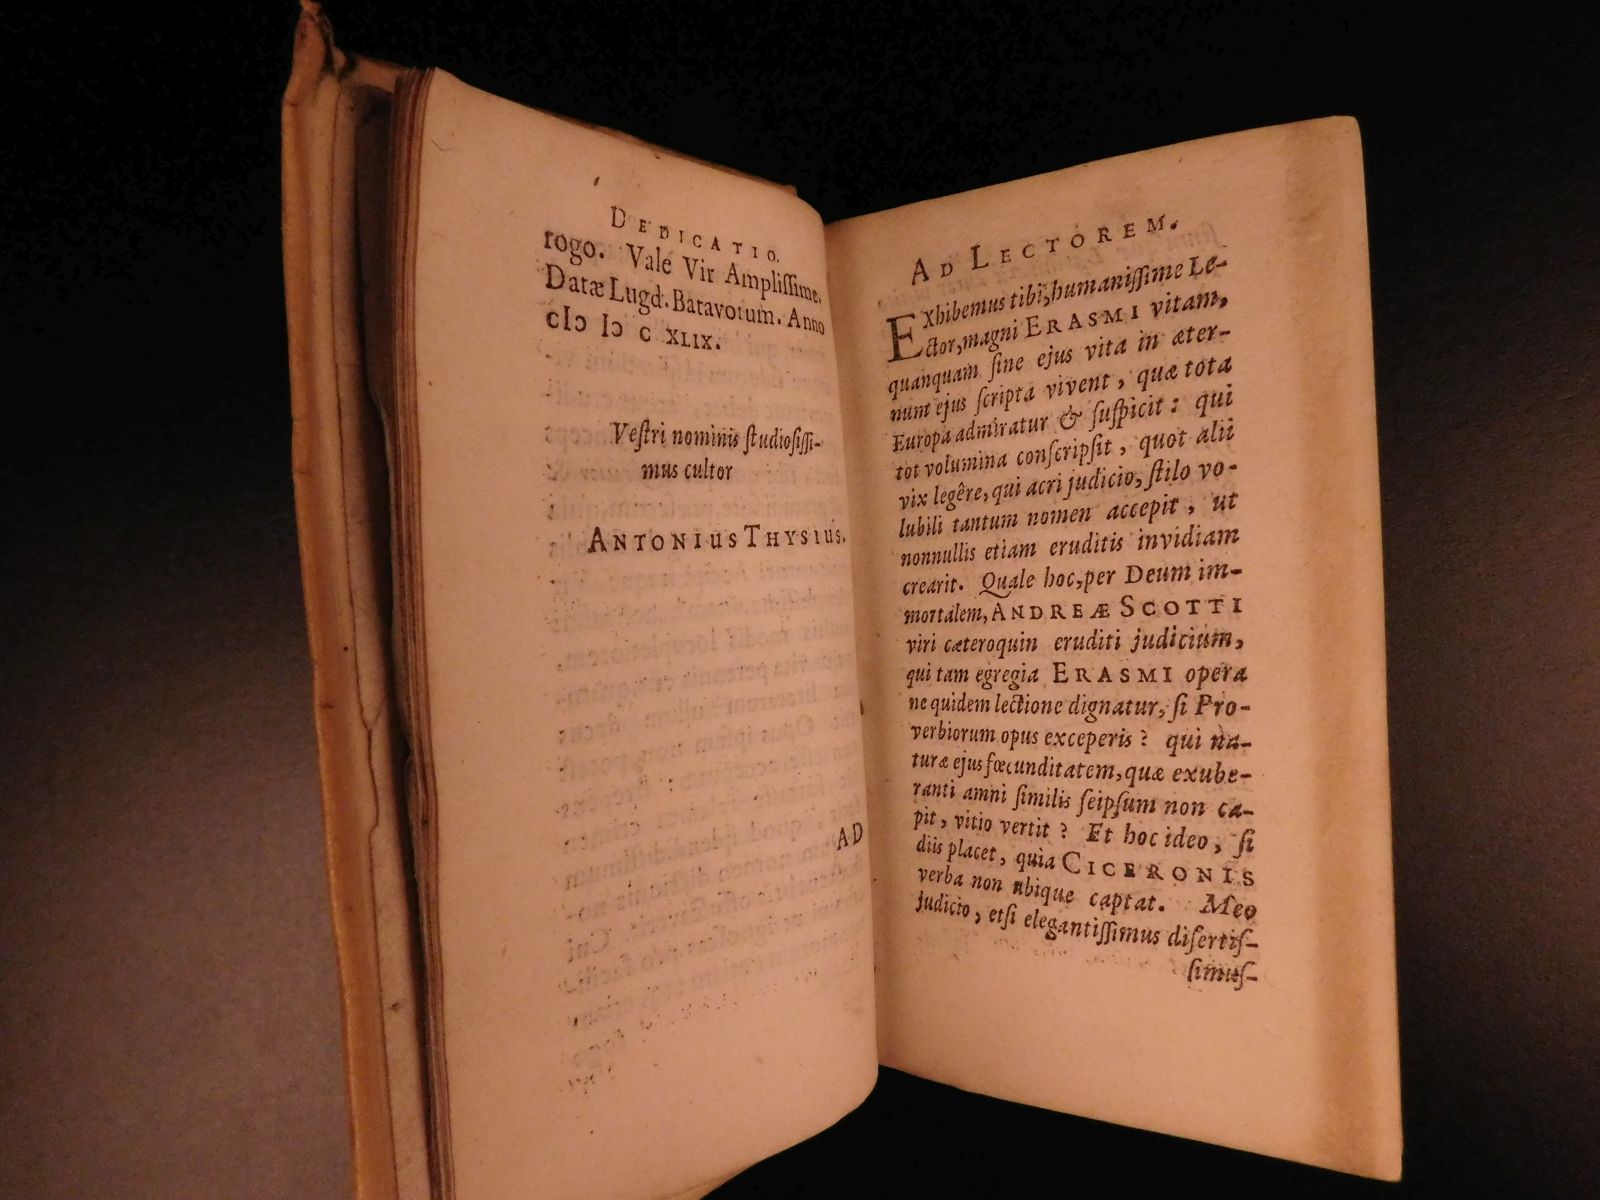 DEDICATIO.
rogo. Vale Vir Ampliſſime.
Datæ Lugd. Batavotum. Anno
cIↄ Iↄ c XLIX.
Veſtri nominis ſtudioſiſſi-
mus cultor
ANTONIUS THYSIUS.
AD
AD LECTOREM.
EXhibemus tibi, humaniſſime Le-
ctor, magni ERASMI vitam,
quanquam ſine ejus vita in æter-
num ejus ſcripta vivent, quæ tota
Europa admiratur & ſuſpicit: qui
tot volumina conſcripſit, quot alii
vix legêre, qui acri judicio, ſtilo vo-
lubili tantum nomen accepit, ut
nonnullis etiam eruditis invidiam
crearit. Quale hoc, per Deum im-
mortalem, ANDREÆ SCOTTI
viri cæteroquin eruditi judicium,
qui tam egregia ERASMI opera
ne quidem lectione dignatur, ſi Pro-
verbiorum opus exceperis? qui na-
turæ ejus fœcunditatem, quæ exube-
ranti amni ſimilis ſeipſum non ca-
pit, vitio vertit? Et hoc ideo, ſi
diis placet, quia CICERONIS
verba non ubique captat. Meo
judicio, etſi elegantiſſimus diſertiſ-
ſimuſ-